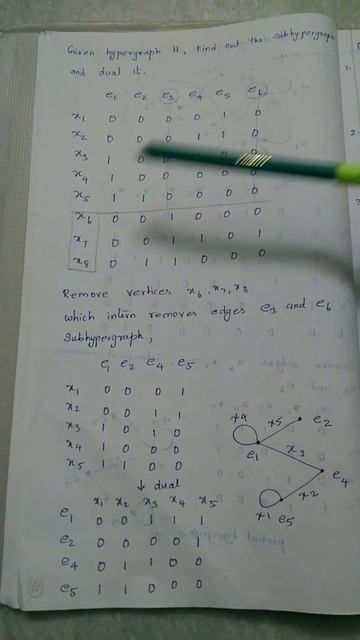 Given hypergraph H, Find out the subhypergraph
and dual it.
e1 e2 e3 e4 e5 e6
x1 0 0 0 0 1 0
x2 0 0 0 1 1 0
x3 1 0 0
x4 1 0 0 0 0 0
x5 1 1 0 0 0 0
x6 0 0 1 0 0 0
x7 0 0 1 1 0 1
x8 0 1 1 0 0 0
Remove vertices x6, x7, x8
which intern removes edges e3 and e6
Subhypergraph,
e1 e2 e4 e5
x1 0 0 0 1
x2 0 0 1 1
x3 1 0 1 0
x4 1 0 0 0
x5 1 1 0 0
↓ dual
x1 x2 x3 x4 x5
e1 0 0 1 1 1
e2 0 0 0 0 1
e4 0 1 1 0 0
e5 1 1 0 0 0
x4 x5 e2
e1 x3
e4
x2
x1 e5